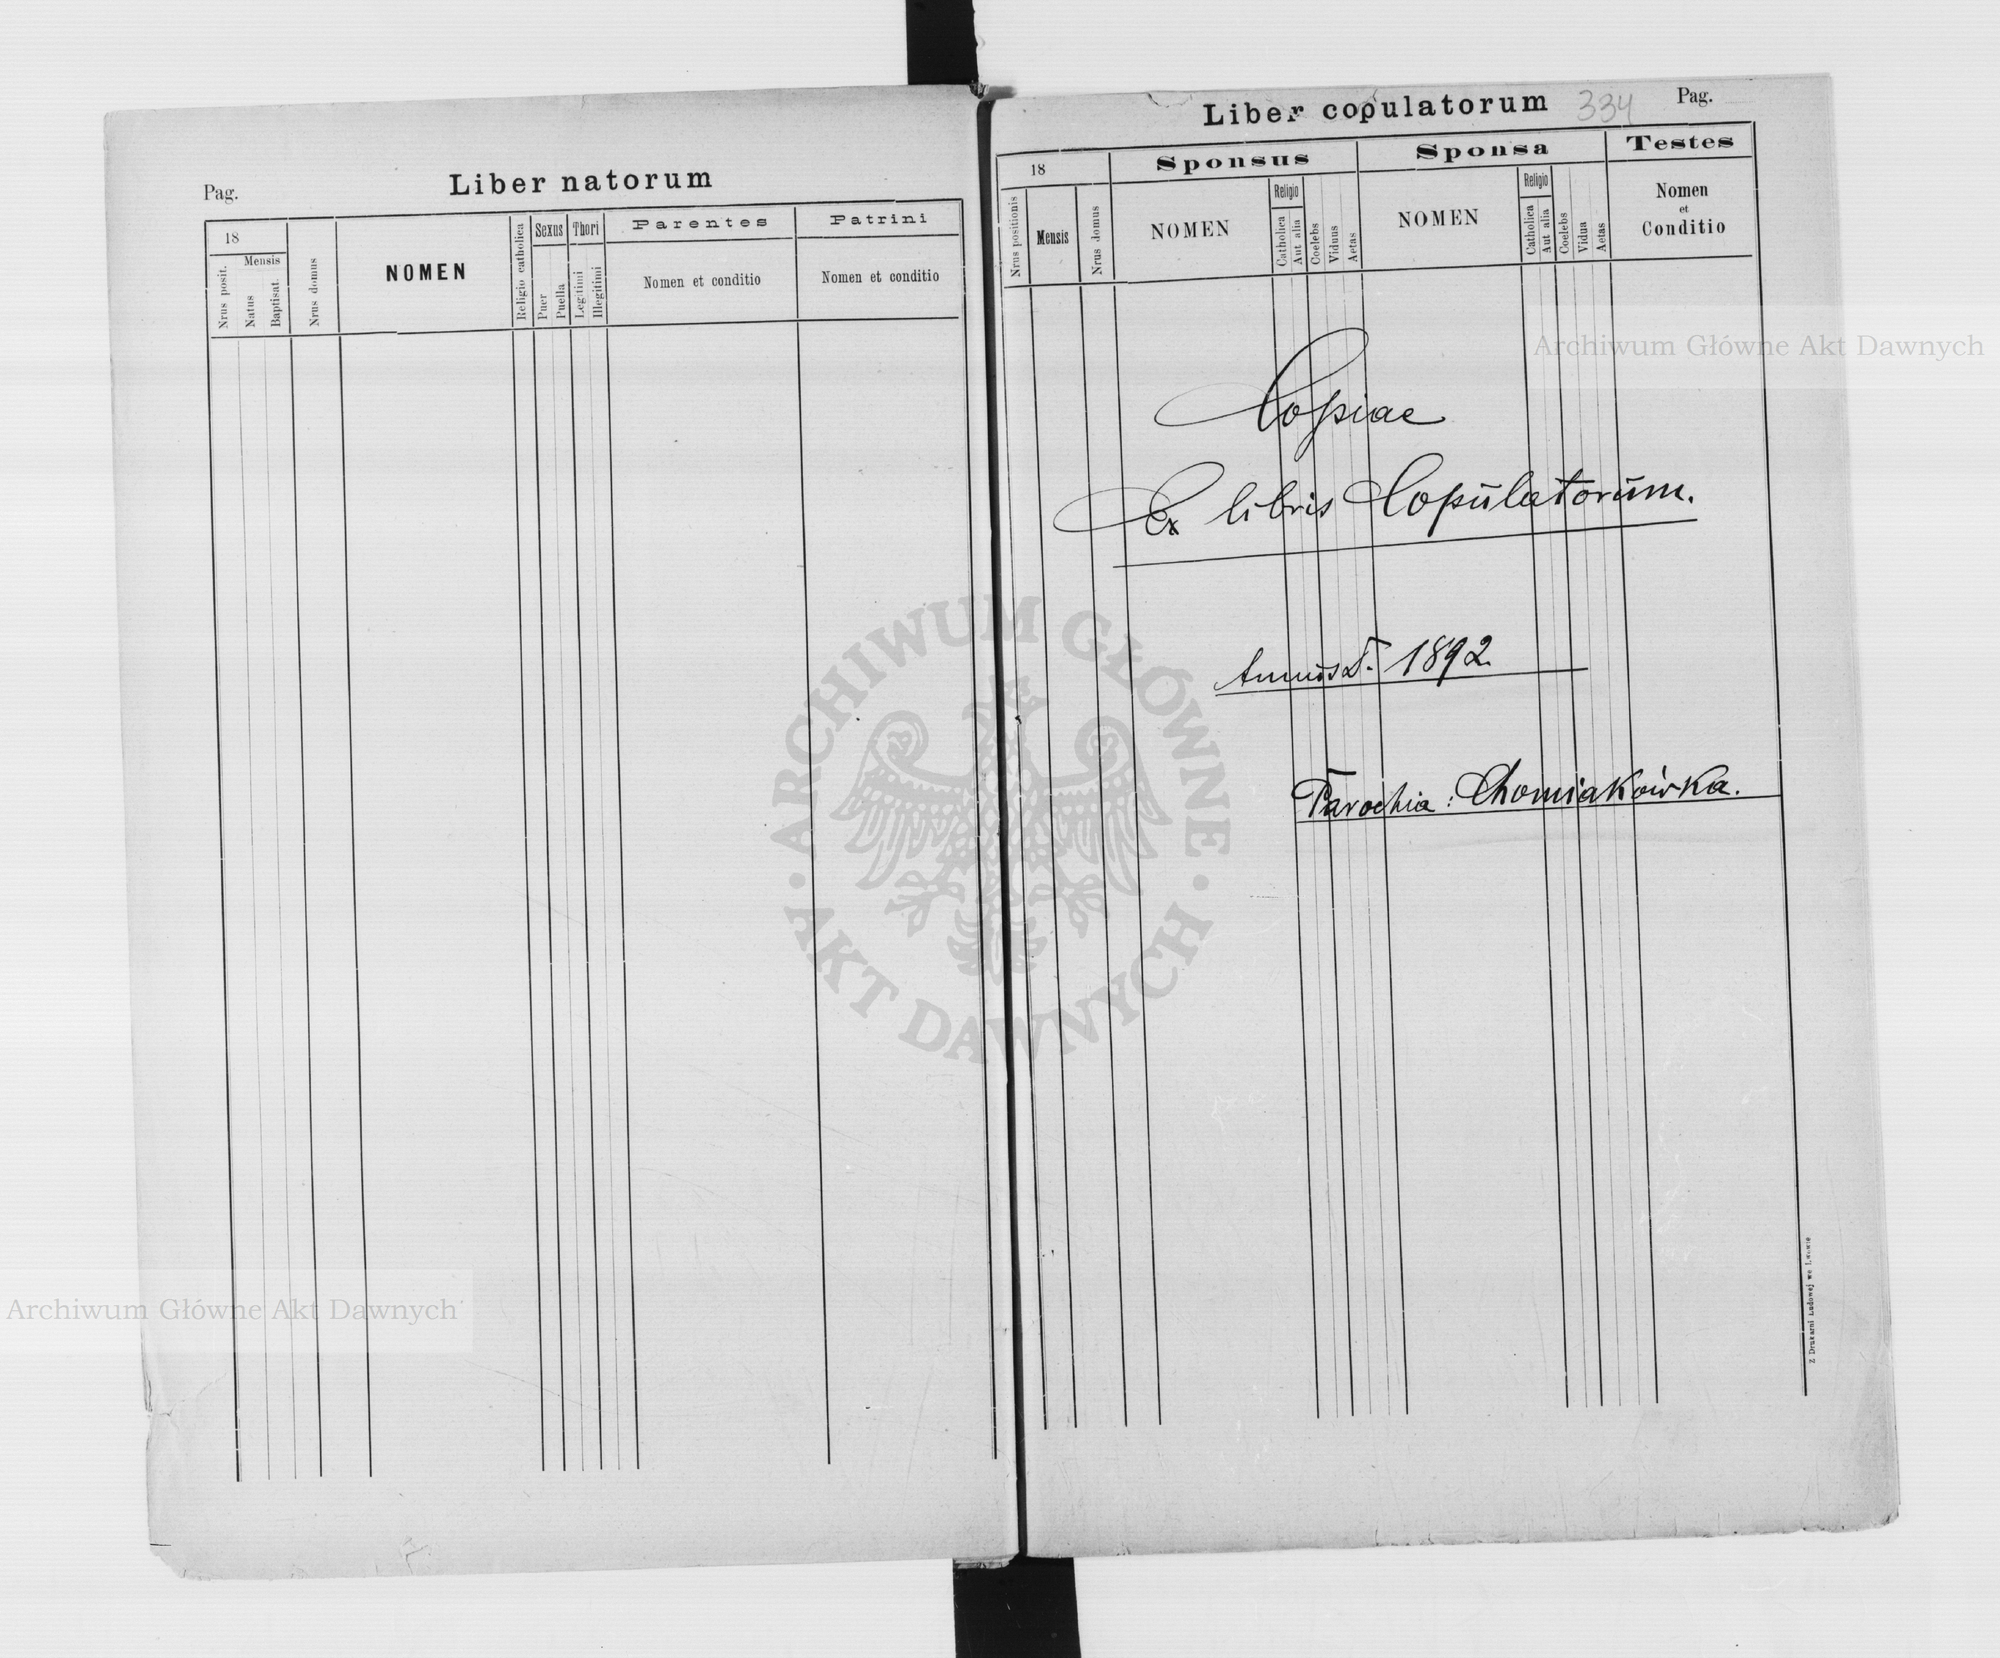 Pag.
Liber natorum
18
Mensis
Nrus posit.
Natus
Baptisat.
Nrus domus
NOMEN
Religio catholica
Sexus
Puer
Puella
Thori
Legitimi
Illegitimi
Parentes
Nomen et conditio
Patrini
Nomen et conditio
Liber copulatorum
334
Pag.
18
Nrus positionis
Mensis
Nrus domus
Sponsus
NOMEN
Religio
Catholica
Aut alia
Coelebs
Viduus
Aetas
Sponsa
NOMEN
Religio
Catholica
Aut alia
Coelebs
Vidua
Aetas
Testes
Nomen
et
Conditio
Copiae
Ex libris Copulatorum.
Annus D. 1892.
Parochia: Chomiakówka.
Z Drukarni Ludowej we Lwowie
Archiwum Główne Akt Dawnych
Archiwum Główne Akt Dawnych
ARCHIWUM GŁÓWNE
AKT DAWNYCH